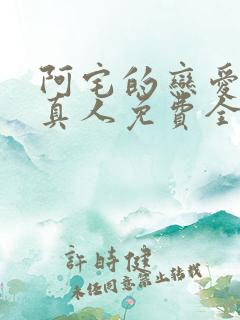 阿宅的戀愛
真人免費全
許時健
未经同意禁止转载